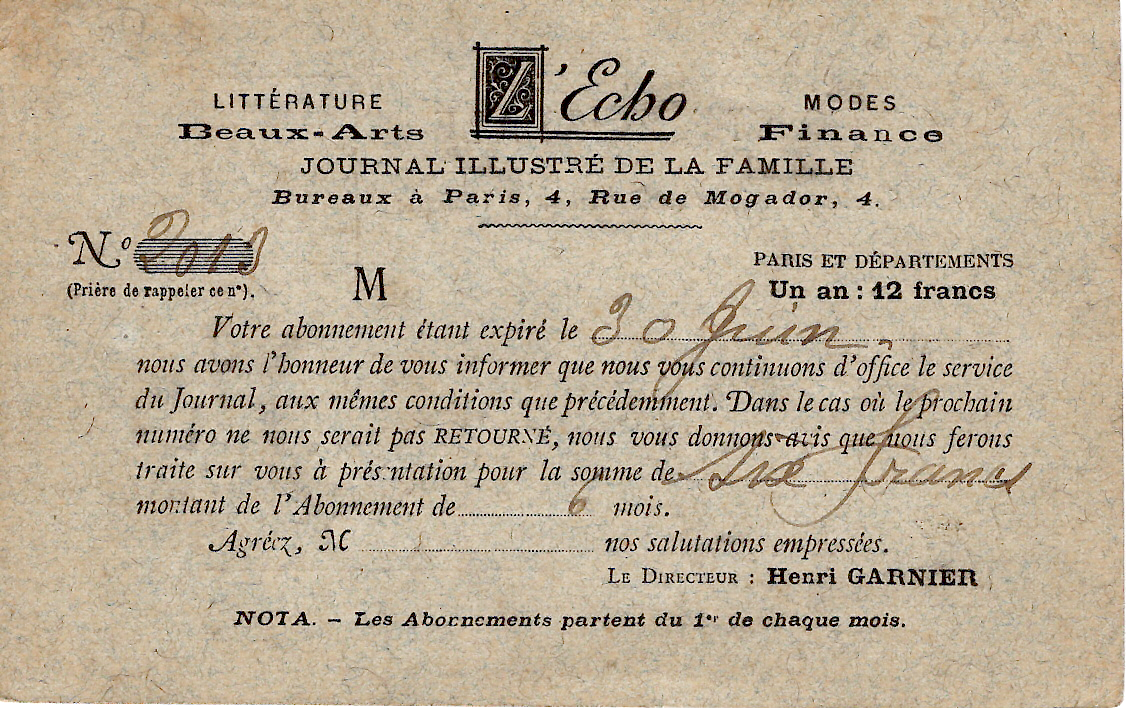 L'Echo
LITTÉRATURE
Beaux-Arts
MODES
Finance
JOURNAL ILLUSTRÉ DE LA FAMILLE
Bureaux à Paris, 4, Rue de Mogador, 4.
N° 2013
(Prière de rappeler ce n°).
M
PARIS ET DÉPARTEMENTS
Un an : 12 francs
Votre abonnement étant expiré le 30 Juin
nous avons l'honneur de vous informer que nous vous continuons d'office le service
du Journal, aux mêmes conditions que précédemment. Dans le cas où le prochain
numéro ne nous serait pas RETOURNÉ, nous vous donnons avis que nous ferons
traite sur vous à présentation pour la somme de six francs
montant de l'Abonnement de 6 mois.
Agréez, M nos salutations empressées.
LE DIRECTEUR : Henri GARNIER
NOTA. – Les Abonnements partent du 1er de chaque mois.